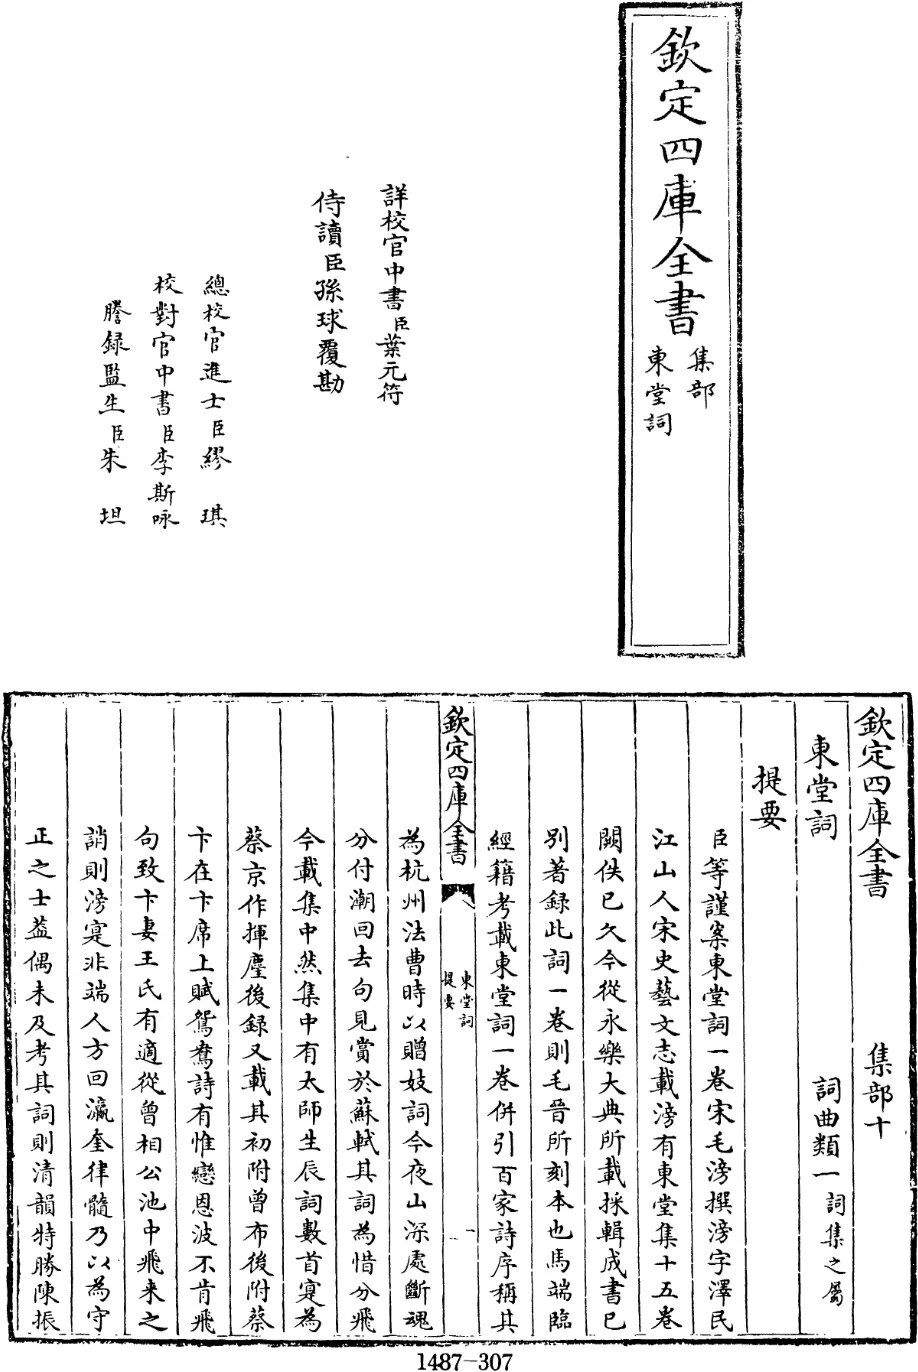 欽定四庫全書
集部
東堂詞
詳校官中書臣葉元符
侍讀臣孫球覆勘
總校官進士臣繆琪
校對官中書臣李斯咏
謄録監生臣朱坦
欽定四庫全書 集部十
東堂詞 詞曲類一 詞集之屬
提要
臣等謹案東堂詞一卷宋毛滂撰滂字澤民
江山人宋史藝文志載滂有東堂集十五卷
闕佚已久今從永樂大典所載採輯成書已
别著録此詞一卷則毛晉所刻本也馬端臨
經籍考載東堂詞一卷併引百家詩序稱其
欽定四庫全書
東堂詞
提要
一
為杭州法曹時以贈妓詞今夜山深處斷魂
分付潮回去句見賞於蘇軾其詞為惜分飛
今載集中然集中有太師生辰詞數首寔為
蔡京作揮麈後録又載其初附曾布後附蔡
卞在卞席上賦鴛鴦詩有惟戀恩波不肯飛
句致卞妻王氏有適從曾相公池中飛来之
誚則滂寔非端人方回瀛奎律髓乃以為守
正之士葢偶未及考其詞則清韻特勝陳振
1487-307